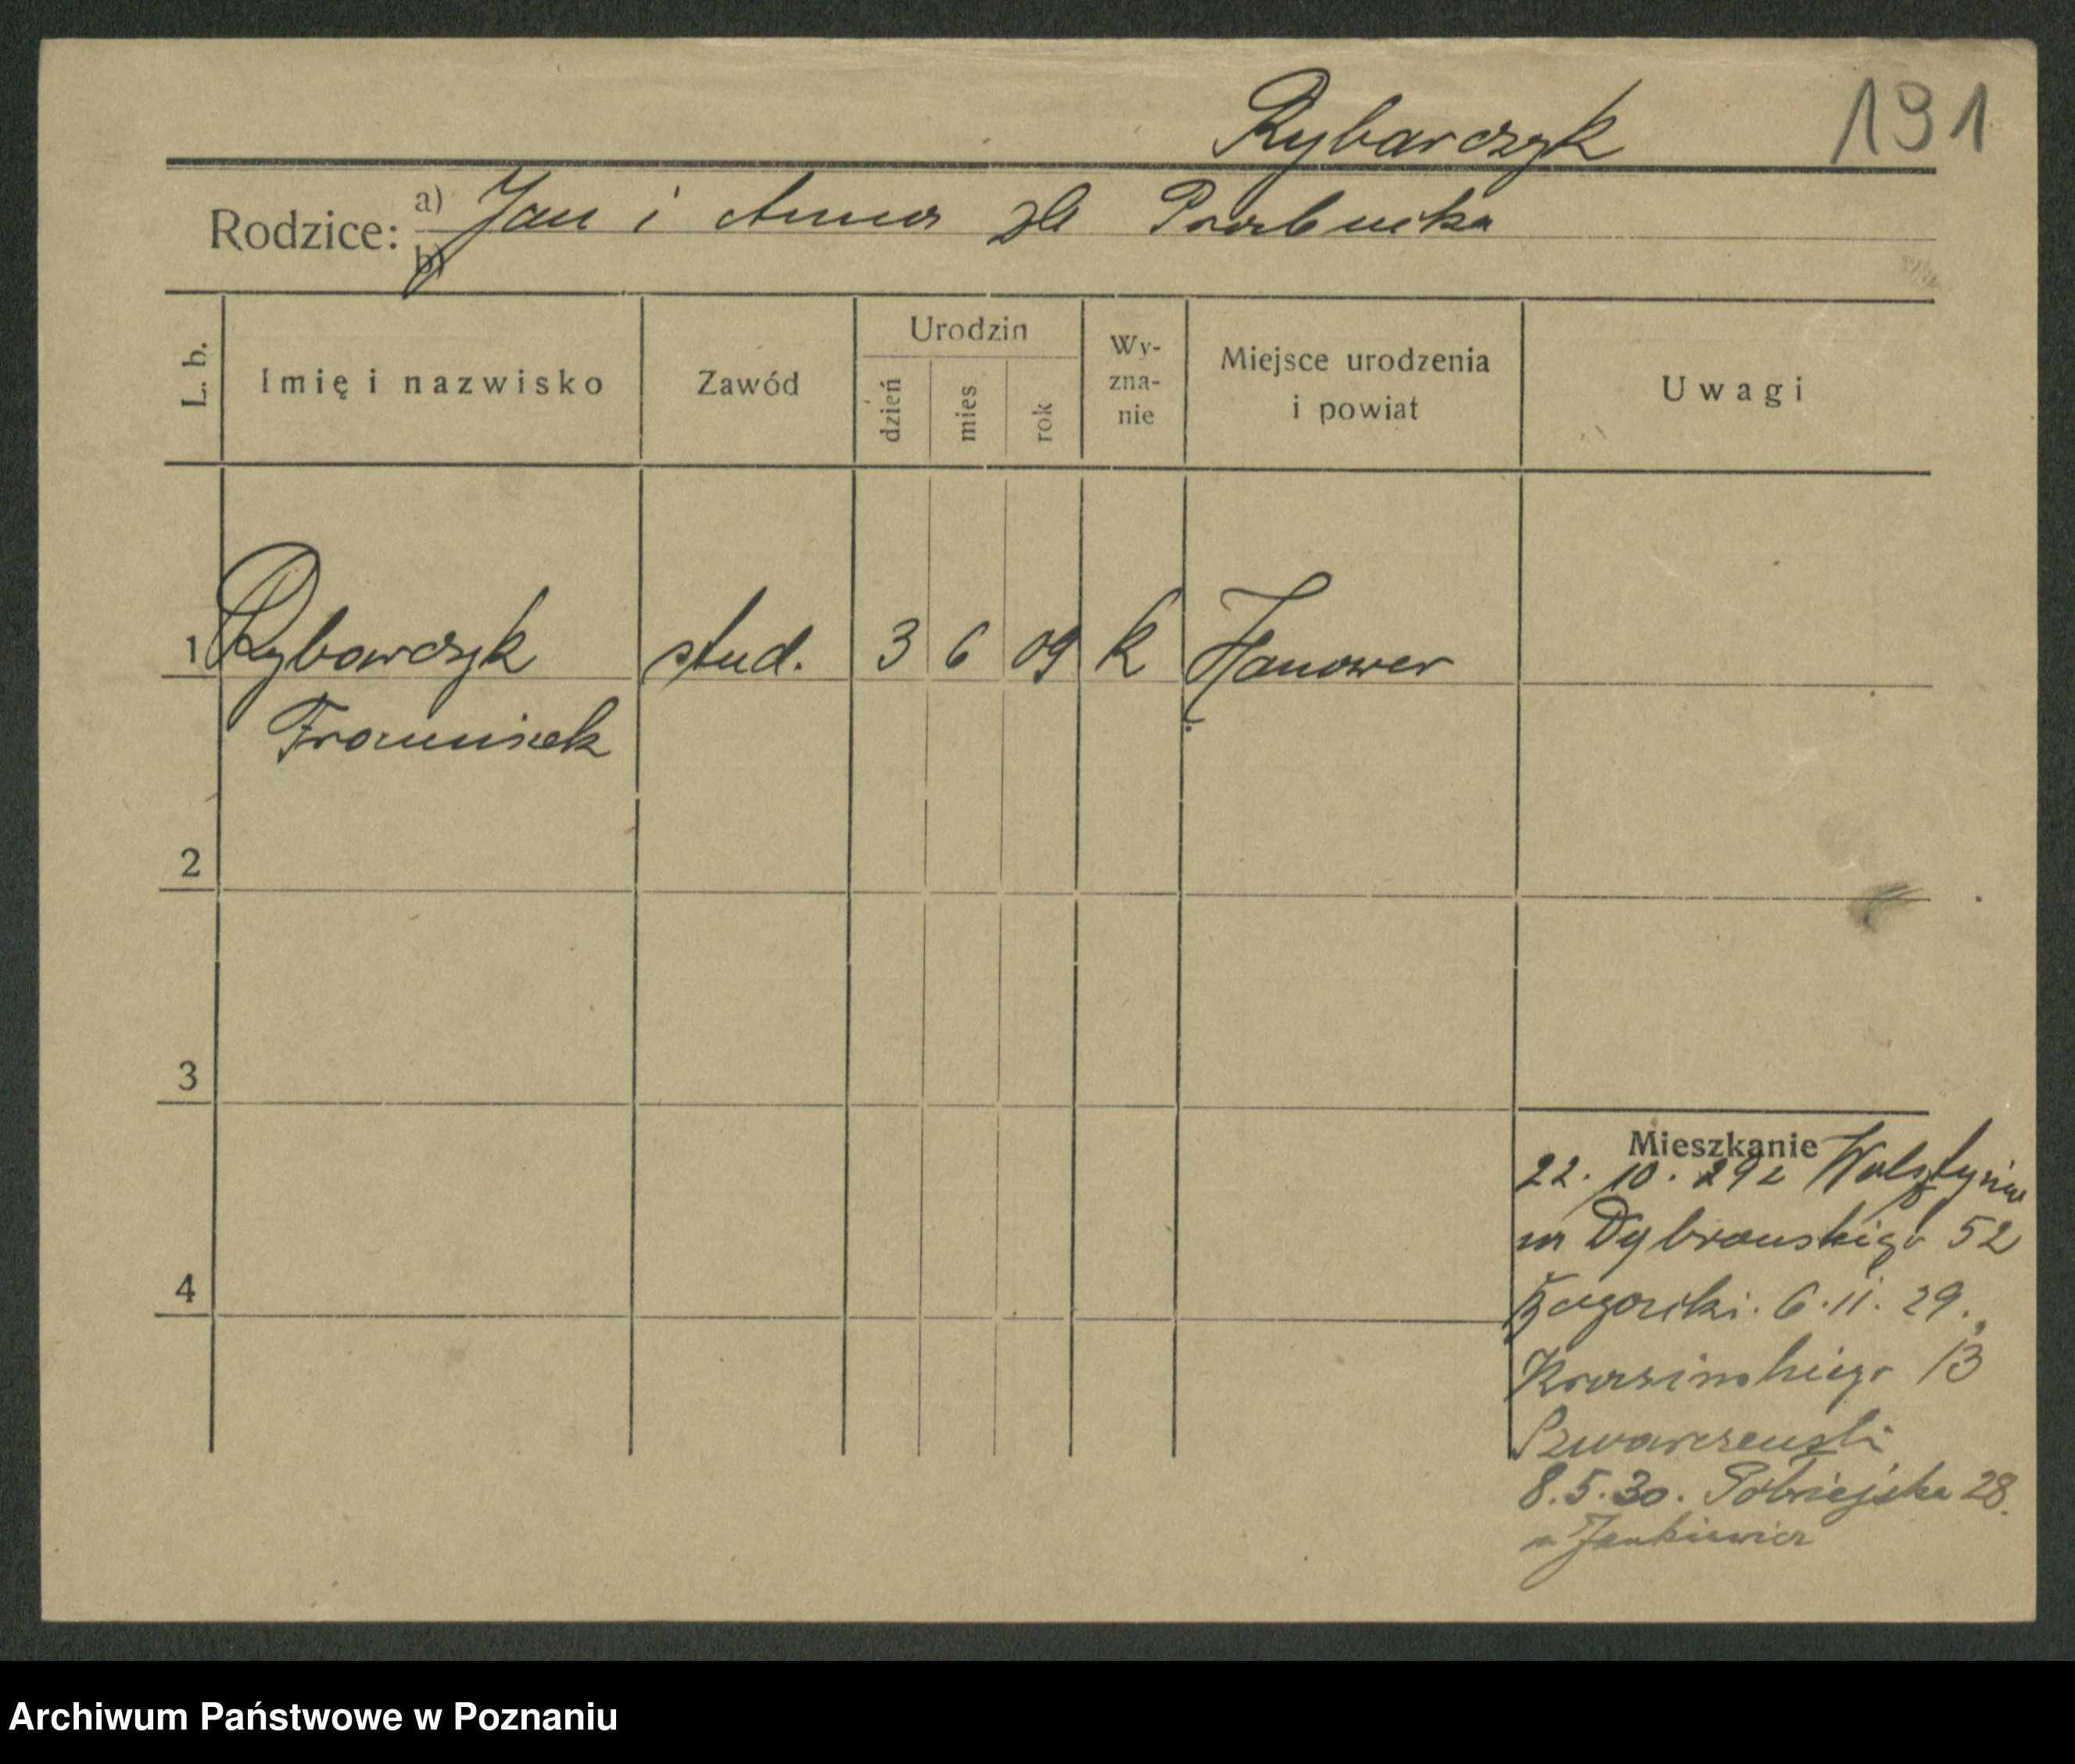 Rybarczyk 191
Rodzice: a) Jan i Anna
b)
L. b.
Imię i nazwisko
Zawód
Urodzin
dzień
mies
rok
Wy-
zna-
nie
Miejsce urodzenia
i powiat
Uwagi
1 Rybarczyk stud. 3 6 09 k Hanower
Franciszek
2
3
4
Mieszkanie
22. 10. 29 z Wolsztyna
na Dąbrowskiego 52
6. 11. 29.
Krasińskiego 13
8. 5. 30. 28.
Jankiewicz
Archiwum Państwowe w Poznaniu